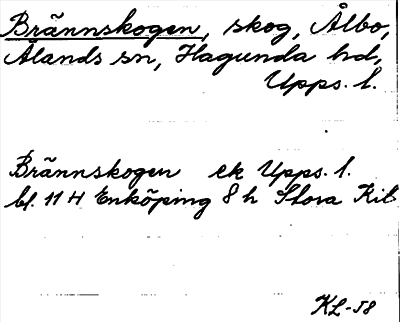 Brännskogen, skog, Ålbo,
Ålands sn, Hagunda hd,
Upps. l.
Brännskogen ek Upps. l.
bl. 11 H Enköping 8 h Stora Kil
KL-58